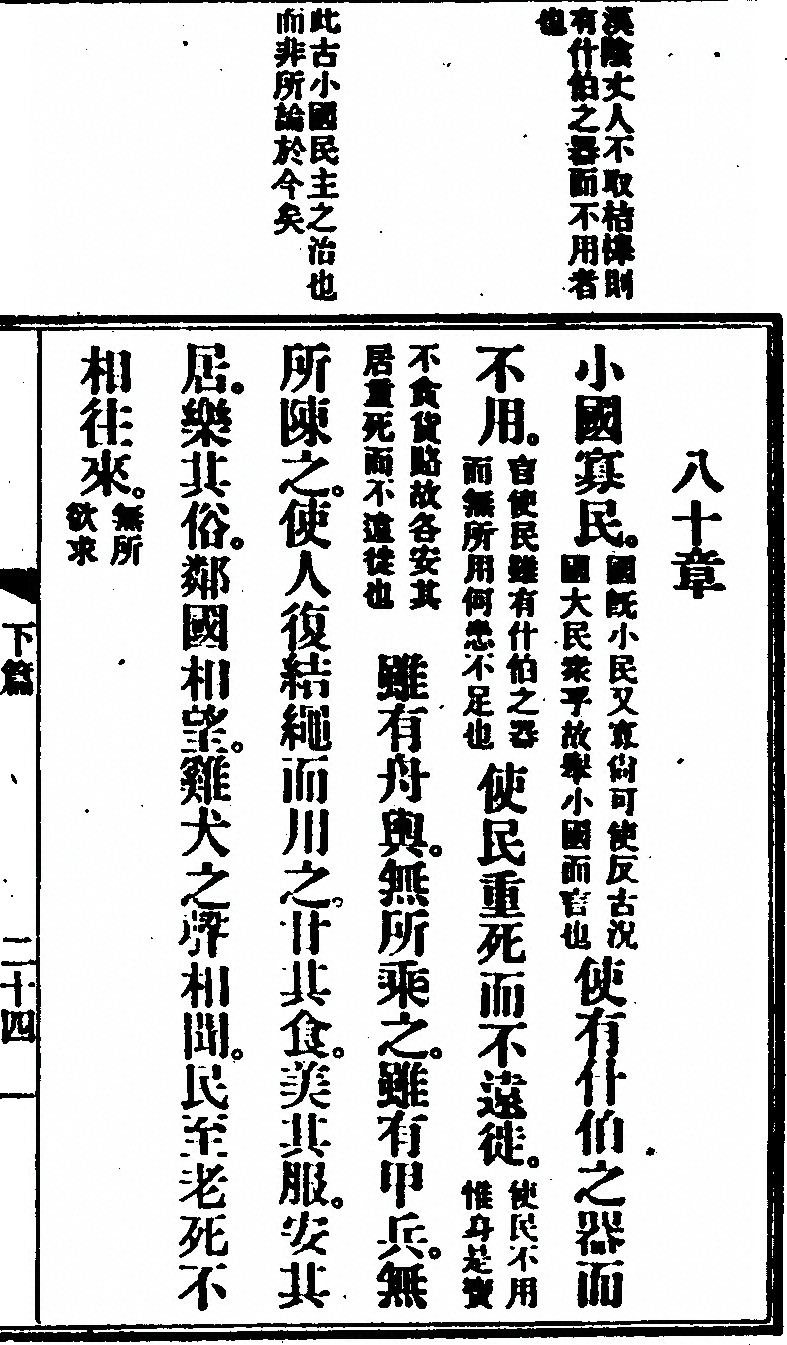 漢陰丈人不取桔槹則
有什伯之器而不用者
也
此古小國民主之治也
而非所論於今矣
八十章
小國寡民。國既小民又寡尚可使反古況國大民衆乎故舉小國而言也使有什伯之器而
不用。官使民雖有什伯之器而無所用何患不足也使民重死而不遠徙。使民不用惟身是寶
不貪貨賂故各安其居重死而不遠徙也雖有舟輿。無所乘之。雖有甲兵。無
所陳之。使人復結繩而用之。甘其食。美其服。安其
居。樂其俗。鄰國相望。雞犬之聲相聞。民至老死不
相往來。無所欲求
下篇
二十四